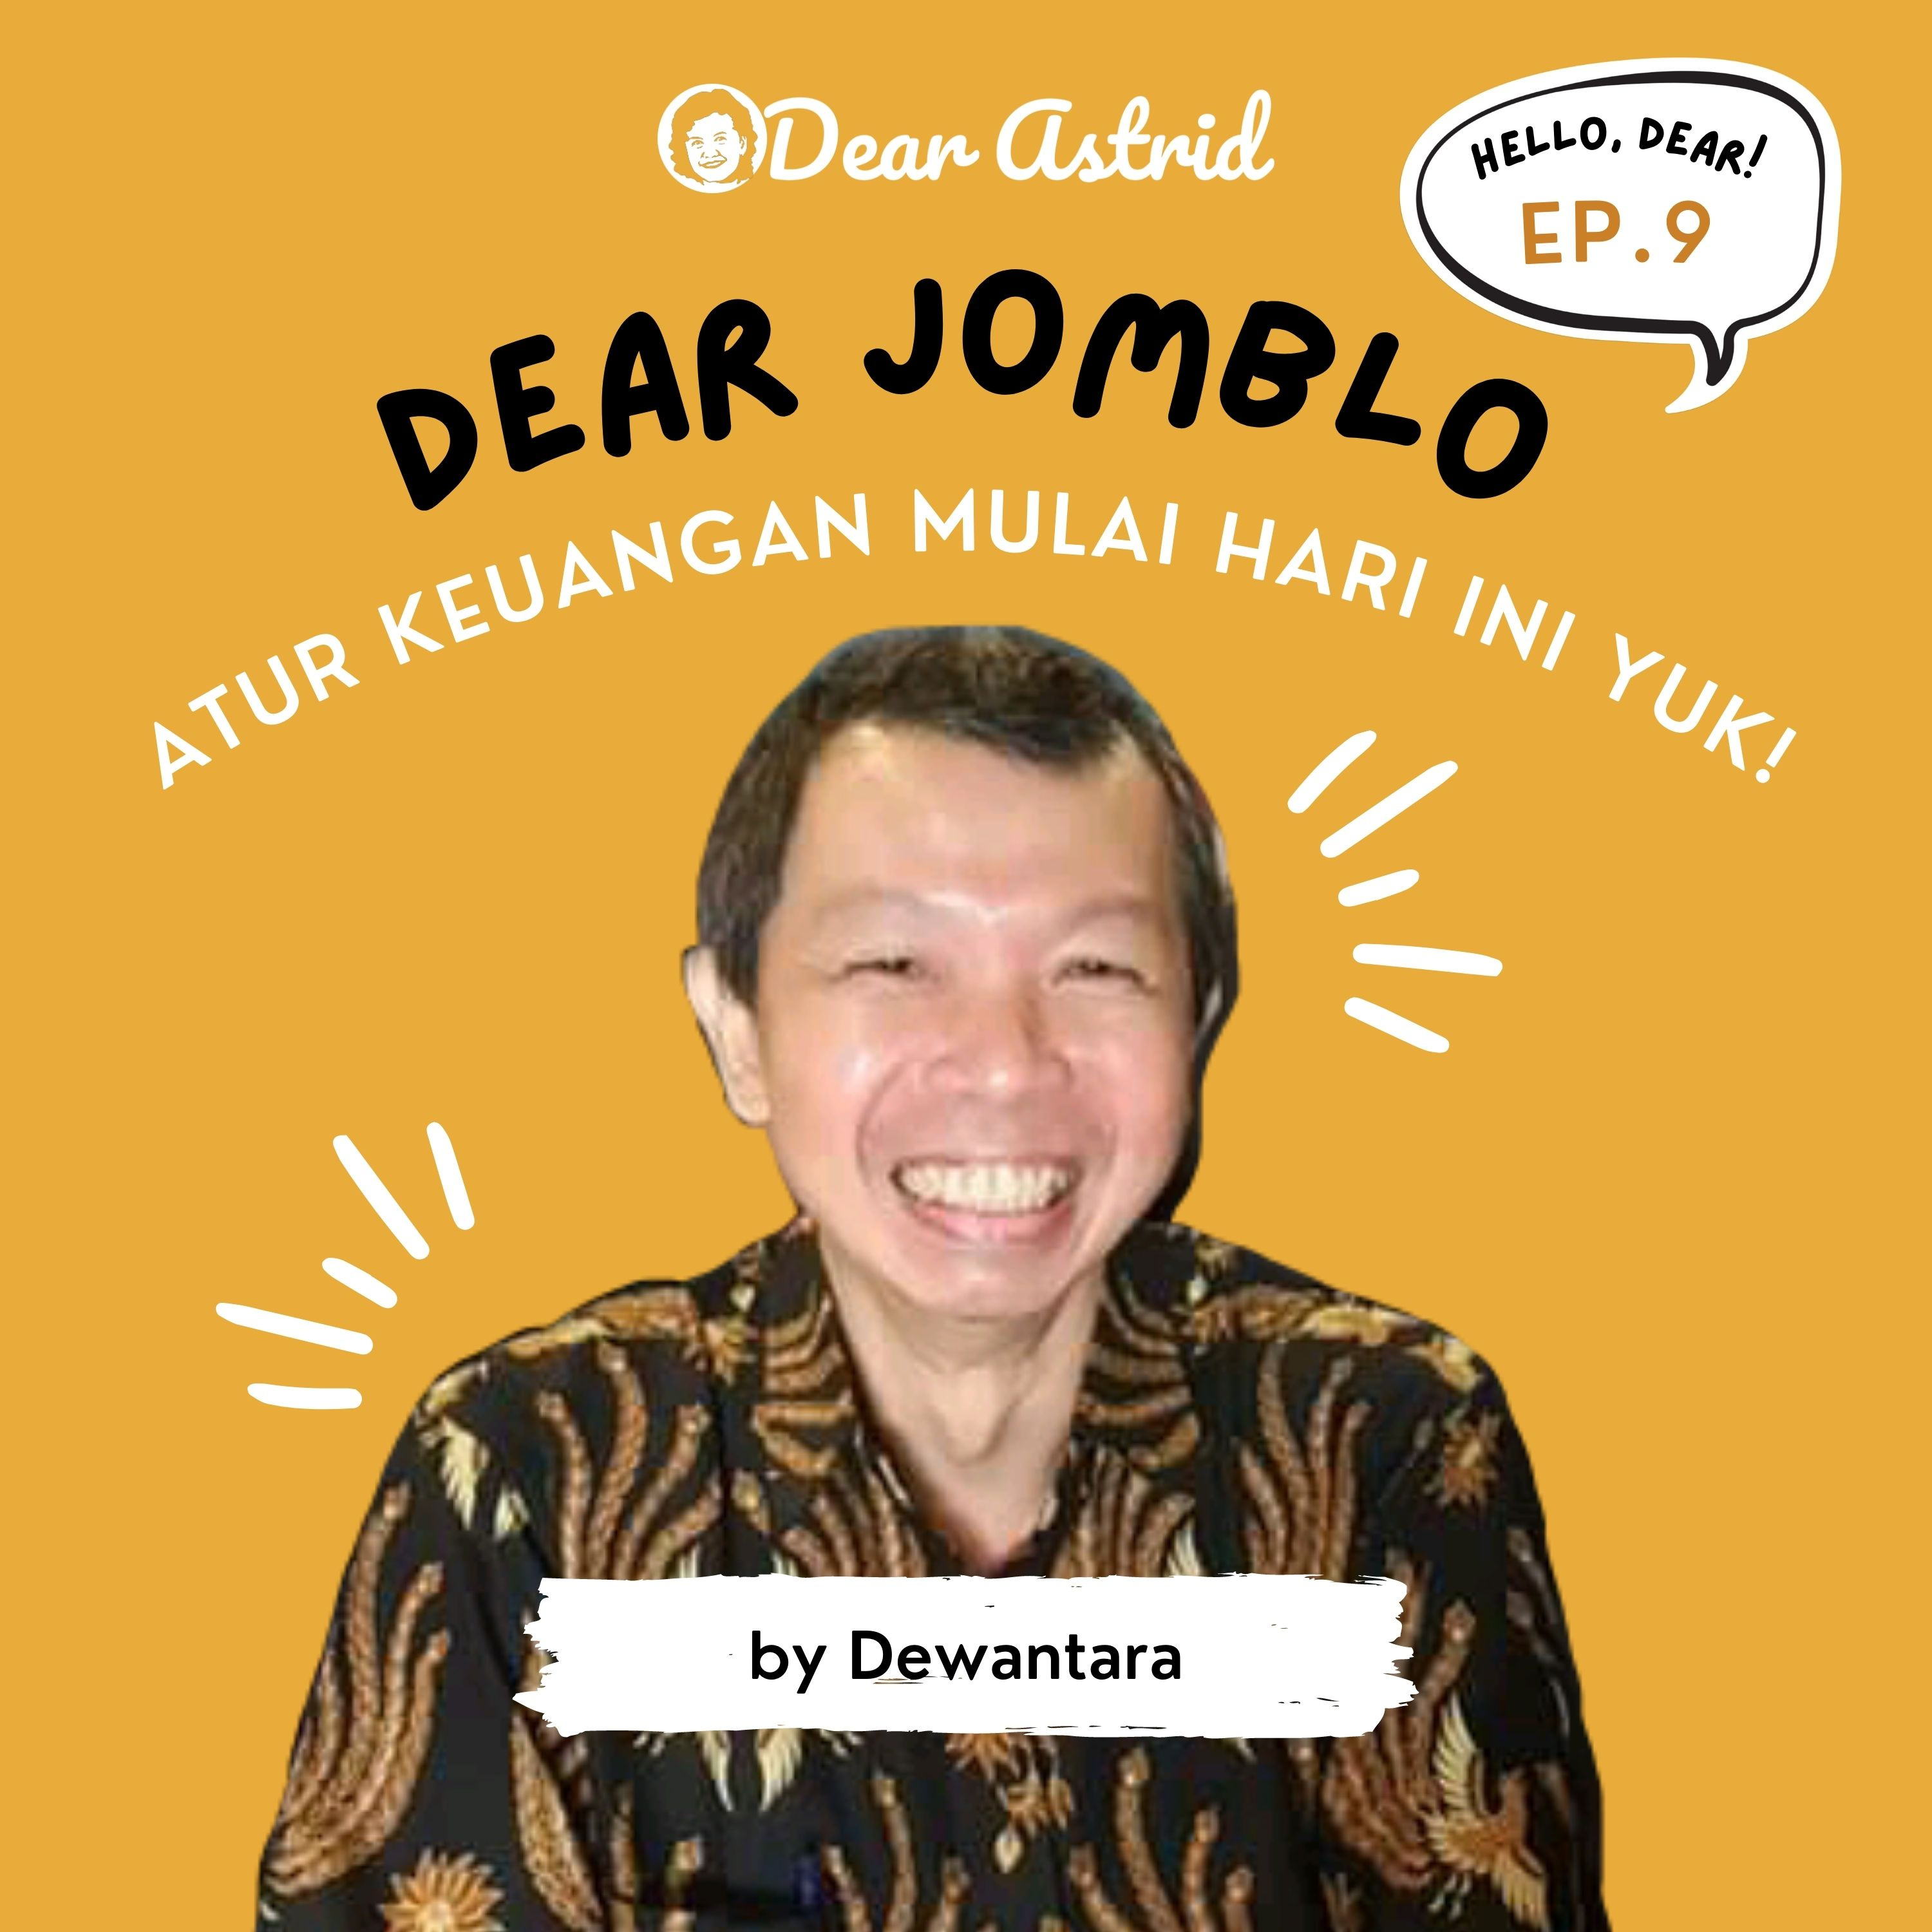 Dear Astrid
HELLO, DEAR!
EP.9
DEAR JOMBLO
ATUR KEUANGAN MULAI HARI INI YUK!
by Dewantara